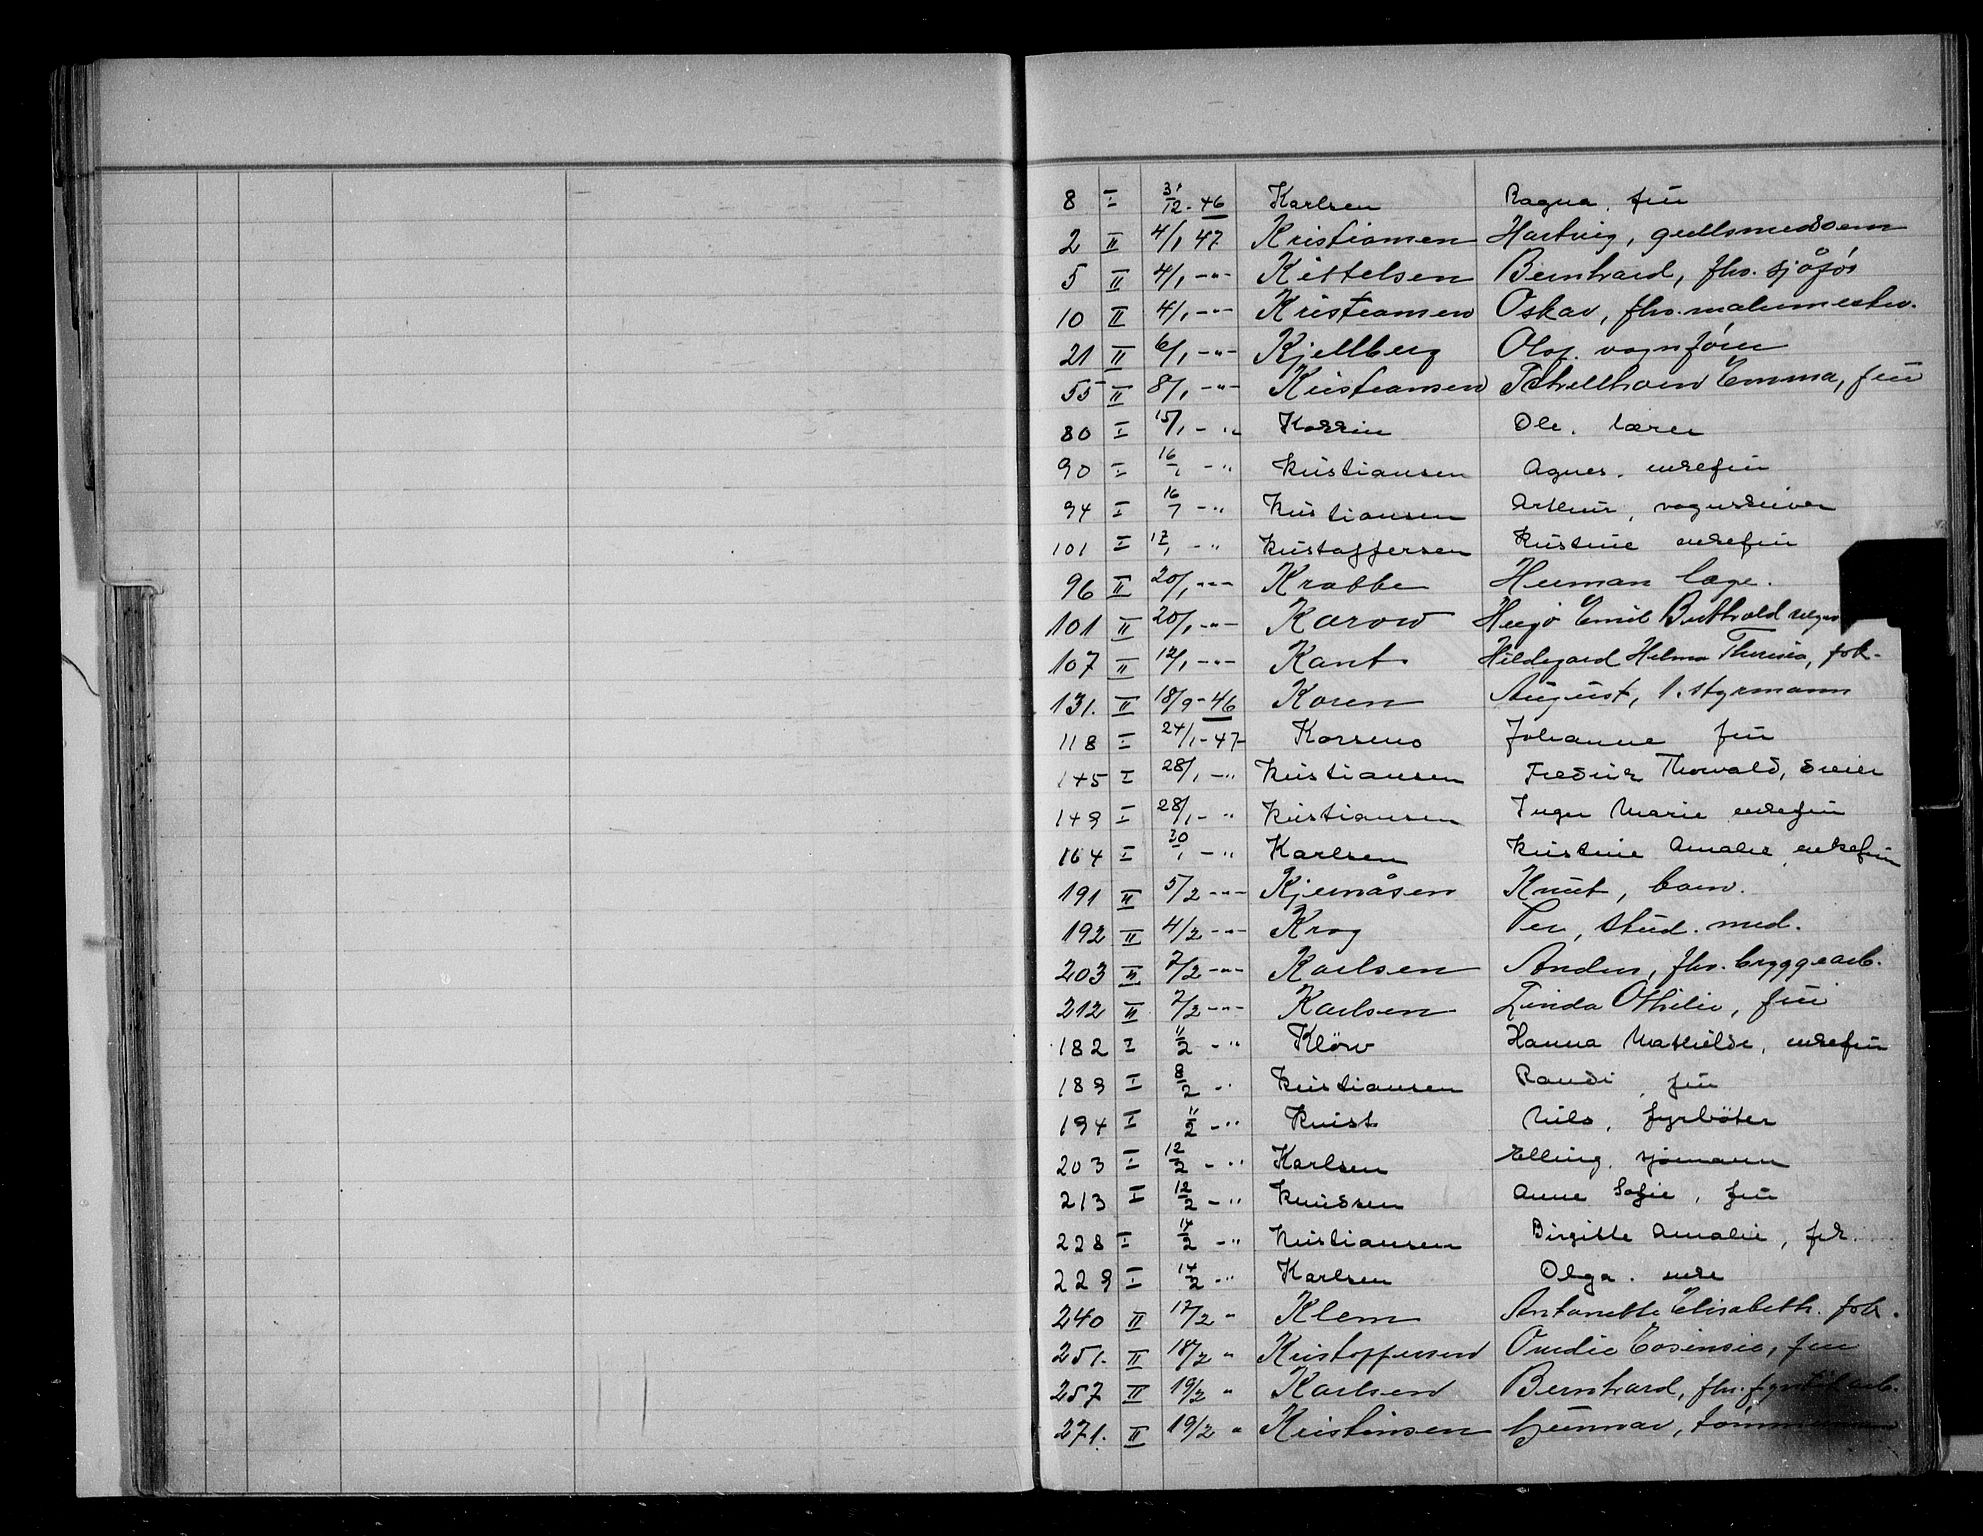 8 I 31/12-46 Karlsen Ragna. fru
2 II 4/1 47 Kristiansen Hartvig, gullsmedsvenn
5 II 4/1 -"- Kittelsen Bernhard, fhv. sjåfør
10 II 4/1 -"- Kristiansen Oskar, fhv. malermester.
21 II 6/1 -"- Kjellberg Olaf. vognfører
55 II 8/1 -"- Kristiansen Emma, fru
80 I 15/1 - " Ole. lærer
90 I 16/1 - " Kristiansen Agnes. enkefru
94 I 16/1 - " Kristiansen Arthur, vognskriver
101 I 17/1 - " Kristoffersen Kristine enkefru
96 II 20/1 -"- Krabbe Herman læge.
101 II 20/1 -"- Karow Hugo Emil Berthold
107 II 12/1 -"- Kant Hildegard Helma Theresia, frk.
131. II 18/9-46 Koren August, 1. styrmann
118 I 24/1-47- Johanne fru
145 I 28/1 - " Kristiansen Fredrik Thorvald, dreier
149 I 28/1 - " Kristiansen Inger Marie enkefru
164 I 30/1 - " Karlsen Kristine Amalie, enkefru
191 II 5/2 -"- Kjernåsen Knut, barn.
192 II 4/2 -"- Krog Per, stud. med.
203 II 7/2 -"- Karlsen Anders, fhv. bryggearb.
212 II 7/2 -"- Karlsen Linda Othilie, fru
182 I 11/2 - " Klöw Hanna Mathilde, enkefru
189 I 8/2 - " Kristiansen Randi, fru
194 I 11/2 - " Kvist Nils, fyrbøter
203 I 12/2 - " Karlsen Elling. sjømann
213 I 12/2 - " Knudsen Anne Sofie, fru
228 I 14/2 - " Kristiansen Birgitte Amalie, frk.
229 I 14/2 - " Karlsen Olga. enke
240 II 17/2 " Klem Antonette Elisabeth. frk.
251. II 18/2 " Kristoffersen fru
257 II 19/2 " Karlsen Bernhard, fhv.
271. II 19/2 " Kristensen Gunnar,